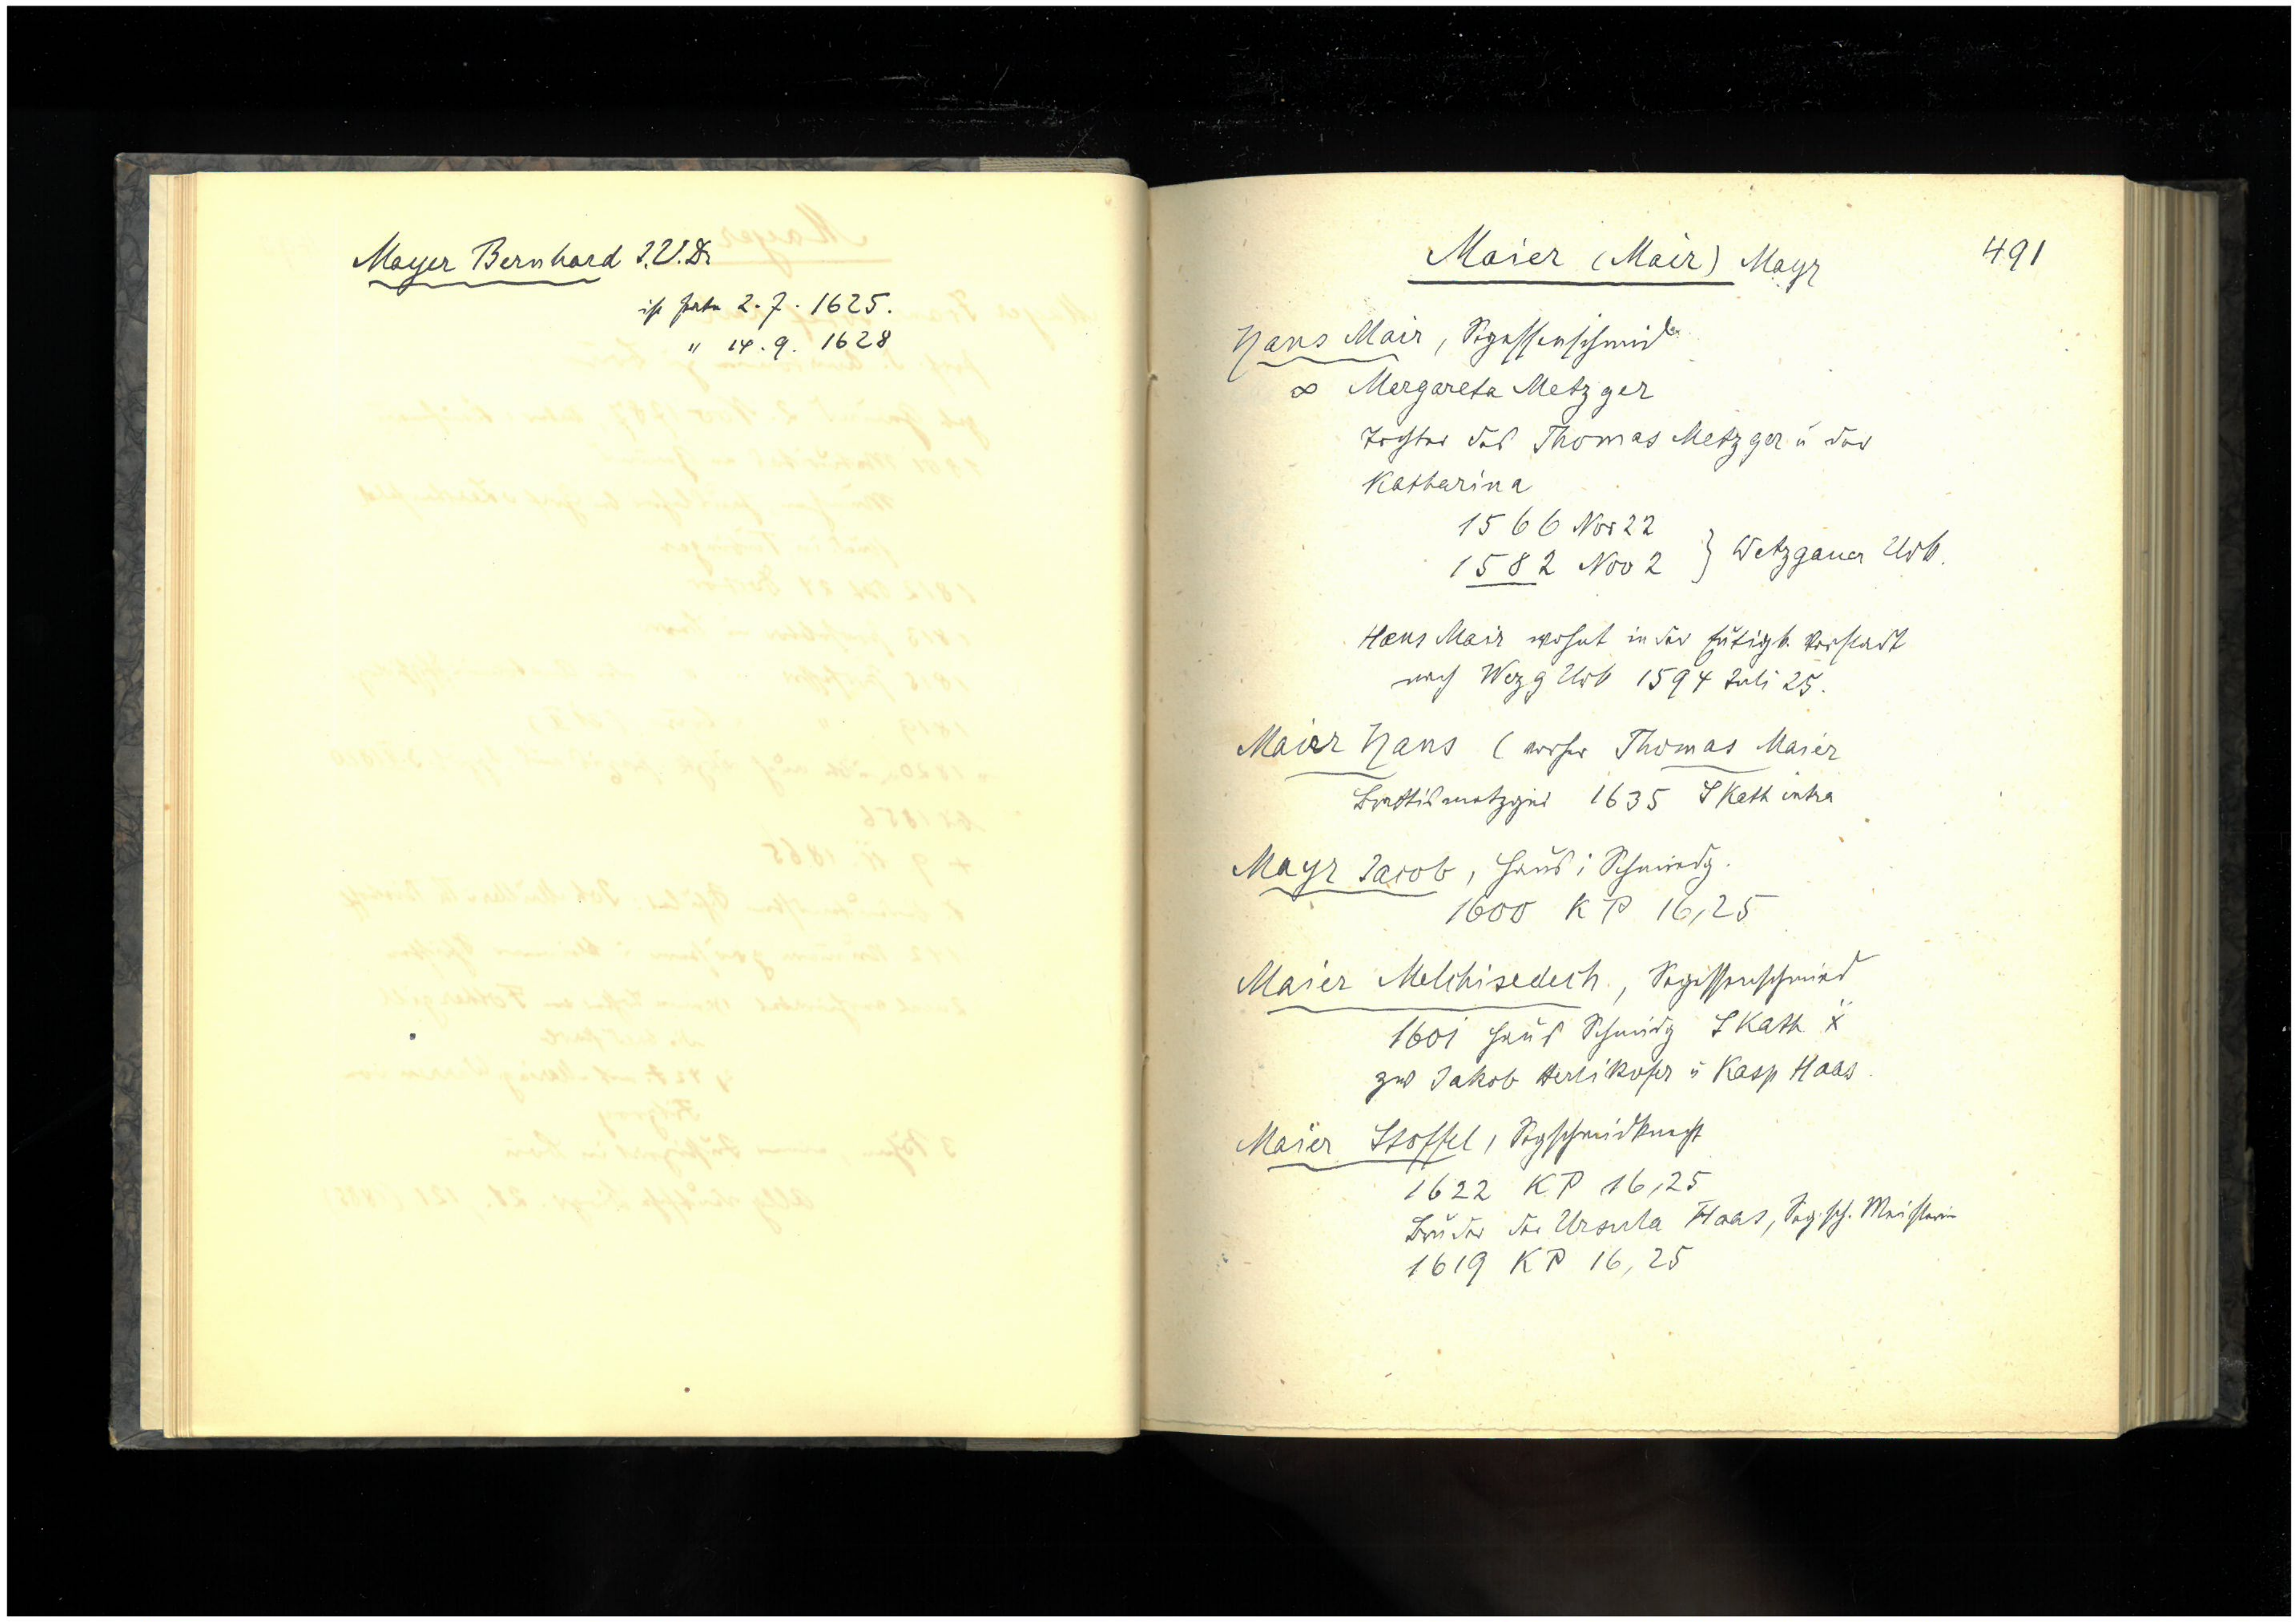 Mayer Bernhard I.U.Dr
ist Pate 2.7.1625.
" 14.9.1628
Maier (Mair) Mayr 491
Hans Mair, Segessenschmid
∞ Margareta Metzger
Tochter des Thomas Metzger u der
Katharina
1566 Nov 22
1582 Nov 2 } Wetzgauer Urb.
Hans Mair wohnt in der Eutigh. Vorstadt
nach Wezg Urb 1594 Juli 25.
Maier Hans (vorher Thomas Maier
1635 S Kath intra
Mayr Jacob, Haus i Schmiedg.
1600 KP 16,25
Maier Melchisedech, Segissenschmied
1601 Haus Schmidg S Kath
zw Jakob Herlikofer u Kasp Haas
Maier Stoffel, Segschmidknecht
1622 KP 16,25
Bruder der Ursula Haas, Seg.sch. Meisterin
1619 KP 16,25